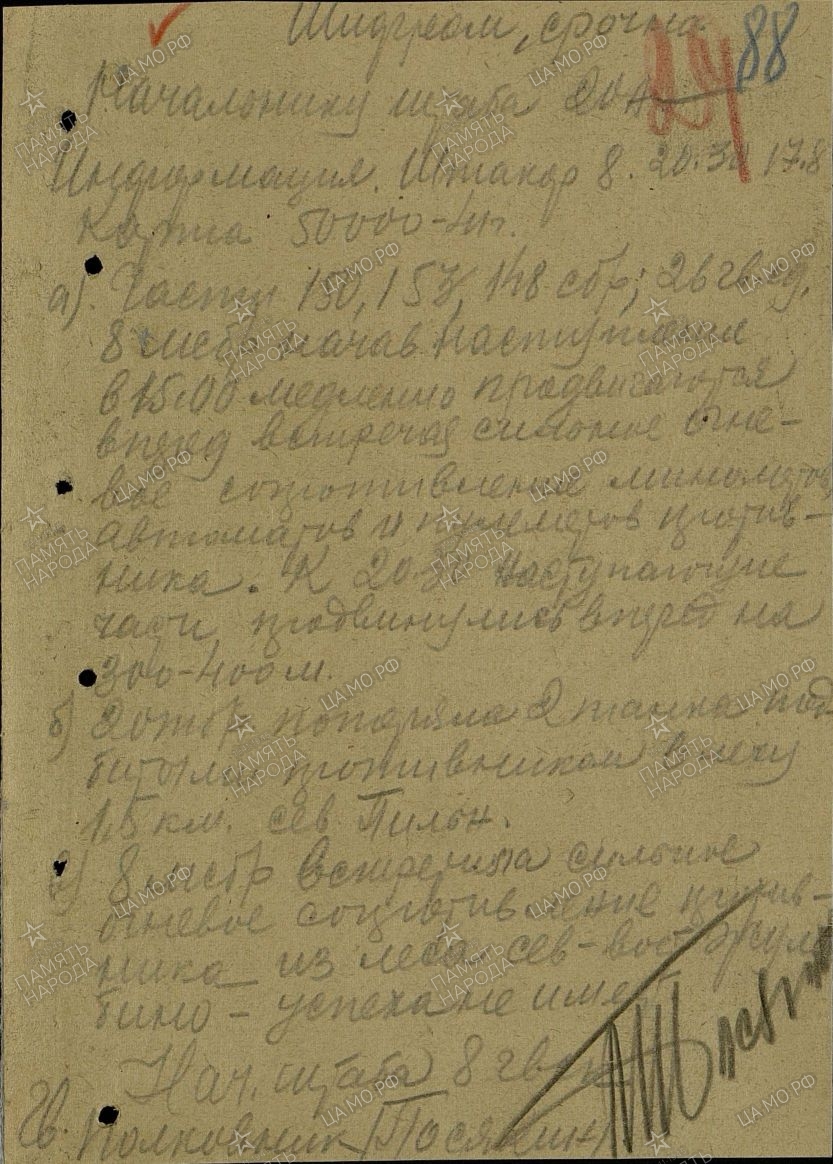 Шифром, срочно
88
Начальнику штаба 20А
Информация. Штакор 8. 20.30 17.8
Карта 50000-41г.
а). Части 150, 153, 148 сбр; 26 гв сд,
8 мсбр начав наступление
в 15.00 медленно продвигаются
вперед встречая сильное огне-
вое сопротивление минометов,
автоматов и пулеметов против-
ника. К 20.30 наступающие
части продвинулись вперед на
300-400 м.
б) 20тбр потеряла 2 танка под
битыми противником в лесу
1,5 км. сев.
в) 8 мсбр встретила сильное
огневое сопротивление против-
ника из леса сев-вост
бино - успеха не имеет
Нач. штаба 8 гвск
Гв. Полковник (Посякин)
ПАМЯТЬ НАРОДА
ЦАМО.РФ